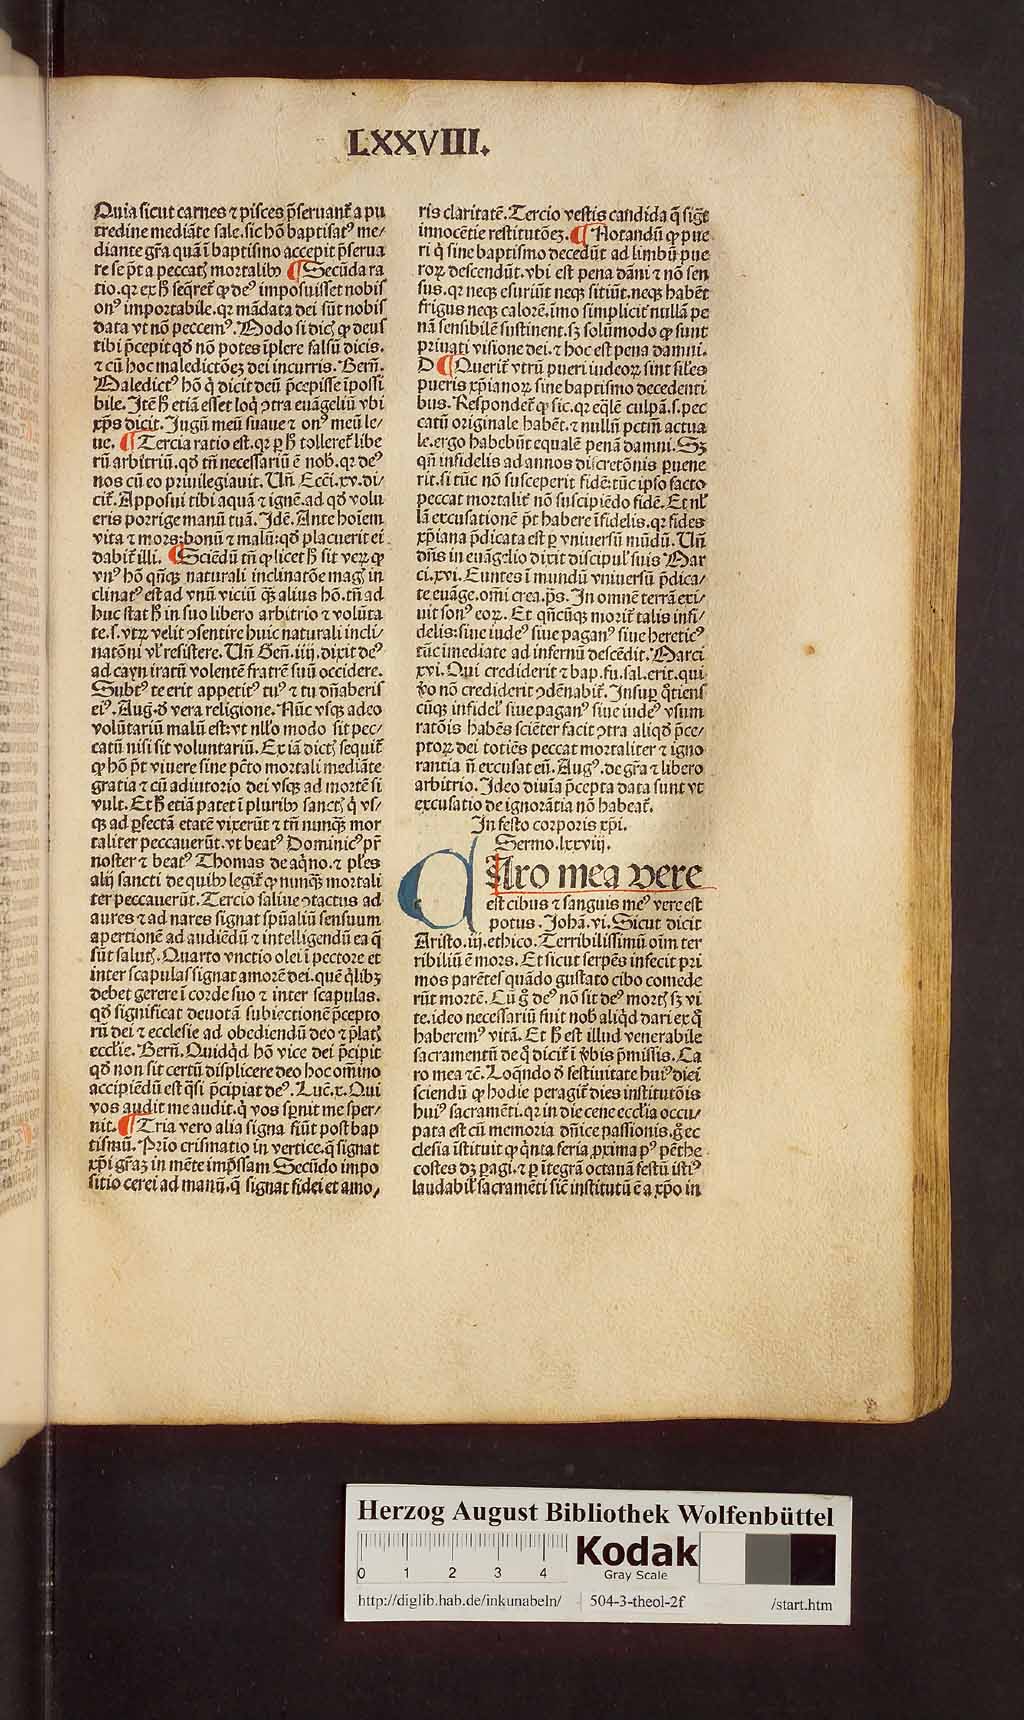 LXXVIII.
Quia sicut carnes ⁊ pisces p̄seruant᷑ a pu
tredine mediāte sale. sic hō baptisatꝰ me/
diante gr̄a quā ī baptismo accepit p̄serua
re se p̄t a peccatꝭ mortalibꝰ ¶ Secūda ra
tio. qꝛ ex ħ seq̄ret᷑ ꝙ deꝰ imposuisset nobis
onꝰ importabile. qꝛ mādata dei sūt nobis
data vt nō peccemꝰ. Modo si dicꝭ ꝙ deus
tibi p̄cepit qd̄ nō potes īplere falsū dicis.
⁊ cū hoc maledictōeꝫ dei incurris. Bern̄.
Maledictꝰ hō q̇ dicit deū p̄cepisse īpossi
bile. Itē ħ etiā esset loq̇ ꝯtra euāgeliū vbi
xp̄s dicit. Jugū meū suaue ⁊ onꝰ meū le/
ue. ¶ Tercia ratio est. qꝛ ꝑ ħ tolleret᷑ libe
rū arbitriū. qd̄ tn̄ necessariū ē nob̄. qꝛ deꝰ
nos cū eo priuilegiauit. Un̄ Ecci. xv. di/
cit᷑. Apposui tibi aquā ⁊ ignē. ad qd̄ volu
eris porrige manū tuā. Idē. Ante hoīem
vita ⁊ mors: bonū ⁊ malū: qd̄ placuerit ei
dabit᷑ illi. ¶ Sciēdū tn̄ ꝙ licet ħ sit veꝝ ꝙ
vnꝰ hō qn̄qꝫ naturali inclinatōe magꝭ in
clinatꝰ est ad vnū viciū qꝫ̄ alius hō. tn̄ ad
huc stat ħ in suo libero arbitrio ⁊ volūta
te. s. vtꝝ velit ꝯsentire huic naturali incli/
natōni vl̓ resistere. Un̄ Gen̄. iiij. dixit deꝰ
ad cayn iratū volentē fratrē suū occidere.
Subtꝰ te erit appetitꝰ tuꝰ ⁊ tu dn̄aberis
eiꝰ. Aug. ꝺ̄ vera religione. Nūc vsqꝫ adeo
volūtariū malū est: vt nll̓o modo sit pec/
catū nisi sit voluntariū. Ex iā dictꝭ sequit᷑
ꝙ hō p̄t viuere sine pc̄to mortali mediāte
gratia ⁊ cū adiutorio dei vsqꝫ ad mortē si
vult. Et ħ etiā patet ī pluribꝰ sanctꝭ q̇ vs/
qꝫ ad ꝑfectā etatē vixerūt ⁊ tn̄ nunqꝫ̄ mor
taliter peccauerūt. vt beatꝰ Dominicꝰ pr̄
noster ⁊ beatꝰ Thomas de aq̇no. ⁊ pl̓es
alij sancti de quibꝰ legit᷑ ꝙ nunqꝫ̄ mortali
ter peccauerūt. Tercio saliue ꝯtactus ad
aures ⁊ ad nares signat spūaliū sensuum
apertionē ad audiēdū ⁊ intelligendū ea q̄
sūt salutꝭ. Quarto vnctio olei ī pectore et
inter scapulas signat amorē dei. quē q̇libꝫ
debet gerere ī corde suo ⁊ inter scapulas.
qd̄ significat deuotā subiectionē p̄cepto
rū dei ⁊ ecclesie ad obediendū deo ⁊ p̄latꝭ
eccl̓ie. Bern̄. Quidq̇d hō vice dei p̄cipit
qd̄ non sit certū displicere deo hoc omīno
accipiēdū est q̄si p̄cipiat deꝰ. Luc̄. x. Qui
vos audit me audit. q̇ vos sp̄nit me sper/
nit. ¶ Tria vero alia signa fiūt post bap
tismū. Prīo crismatio in vertice. q̄ signat
xp̄i gr̄aꝫ in mēte imp̄ssam Secūdo impo
sitio cerei ad manū. q̄ signat fidei et amo/
ris claritatē. Tercio vestis candida q̄ sigt᷑
innocētie restitutōeꝫ. ¶ Notandū ꝙ pue
ri q̇ sine baptismo decedūt ad limbū pue
roꝝ descendūt. vbi est pena dāni ⁊ nō sen
sus. qꝛ neqꝫ esuriūt neqꝫ sitiūt. neqꝫ habēt
frigus neqꝫ calorē. imo simplicit᷑ nullā pe
nā sensibilē sustinent. sꝫ solūmodo ꝙ sunt
priuati visione dei. ⁊ hoc est pena damni.
D ¶ Querit᷑ vtrū pueri iudeoꝝ sint sil̓es
pueris xp̄ianoꝝ sine baptismo decedenti
bus. Respondet᷑ ꝙ sic. qꝛ eq̄lē culpā. s. pec
catū originale habēt. ⁊ nullū pctm̄ actua
le. ergo habebūt equalē penā damni. Sꝫ
qn̄ infidelis ad annos discretōnis ꝑuene
rit. si tūc nō susceperit fidē: tūc ipso facto
peccat mortalit᷑ nō suscipiēdo fidē. Et nl̓
lā excusationē p̄t habere īfidelis. qꝛ fides
xp̄iana p̄dicata est ꝑ vniuersū mūdū. Un̄
dn̄s in euāgelio dixit discipul̓ suis Mar
ci. xvi. Euntes ī mundū vniuersū p̄dica/
te euāge. om̄i crea. p̄s. In omnē terrā exi/
uit sonꝰ eoꝝ. Et qn̄cūqꝫ morit᷑ talis infi/
delis: siue iudeꝰ siue paganꝰ siue hereticꝰ
tūc imediate ad infernū descēdit. Marci
xvi. Qui crediderit ⁊ bap. fu. sal. erit. qui
v̊o nō crediderit ꝯdēnabit᷑. Insuꝑ q̇tiens
cūqꝫ infidel̓ siue paganꝰ siue iudeꝰ vsum
ratōis habēs sciēter facit ꝯtra aliqd̄ p̄ce/
ptoꝝ dei totiēs peccat mortaliter ⁊ igno
rantia n̄ excusat eū. Augꝰ. de gr̄a ⁊ libero
arbitrio. Ideo diuīa p̄cepta data sunt vt
excusatio de ignorātia nō habeat᷑.
In festo corporis xp̄i.
Sermo. lxxviij.
CAro mea vere
est cibus ⁊ sanguis meꝰ vere est
potus. Johā. vi. Sicut dicit
Aristo. iij. ethico. Terribilissimū oīm ter
ribiliū ē mors. Et sicut serpēs infecit pri
mos parētes quādo gustato cibo comede
rūt mortē. Cū g̊ deꝰ nō sit deꝰ mortꝭ sꝫ vi
te. ideo necessariū fuit nob̄ aliq̇d dari ex q̊
haberemꝰ vitā. Et ħ est illud venerabile
sacramentū de q̊ dicit᷑ ī v̓bis p̄missis. Ca
ro mea ⁊c̄. Loq̄ndo ꝺ̄ festiuitate huiꝰ diei
sciendū ꝙ hodie peragit᷑ dies institutōis
huiꝰ sacramēti. qꝛ in die cene eccl̓ia occu/
pata est cū memoria dn̄ice passionis. g̊ ec
clesia īstituit ꝙ q̇nta feria ꝓxima pꝰ pēthe
costes dꝫ ꝑagi. ⁊ ꝑ īntegrā octauā festū istiꝰ
laudabil̓ sacramēti sic̄ institutū ē a xp̄o in
Herzog August Bibliothek Wolfenbüttel
0 1 2 3 4
Kodak
Gray Scale
http://diglib.hab.de/inkunabeln/ 504-3-theol-2f /start.htm